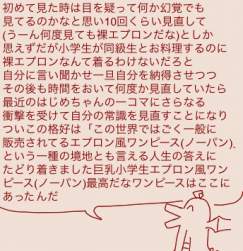 初めて見た時は目を疑って何か幻覚でも
見てるのかなと思い10回くらい見直して
(うーん何度見ても裸エプロンだな)としか
思えずだが小学生が同級生とお料理するのに
裸エプロンなんて着るわけないだろと
自分に言い聞かせ一旦自分を納得させつつ
その後も時間をおいて何度か見直していたら
最近のはじめちゃんの一コマにさらなる
衝撃を受けて自分の常識を見直すことになり
ついこの格好は「この世界ではごく一般に
販売されてるエプロン風ワンピース(ノーパン)、
という一種の境地とも言える人生の答えに
たどり着きました巨乳小学生エプロン風ワン
ピース(ノーパン)最高だなワンピースはここに
あったんだ